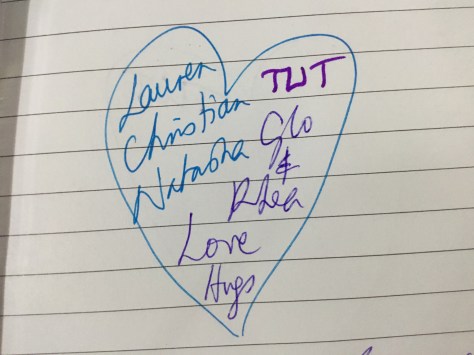 Lauren
Christian TUT
Natasha Glo
&
Rhea
Love
Hugs